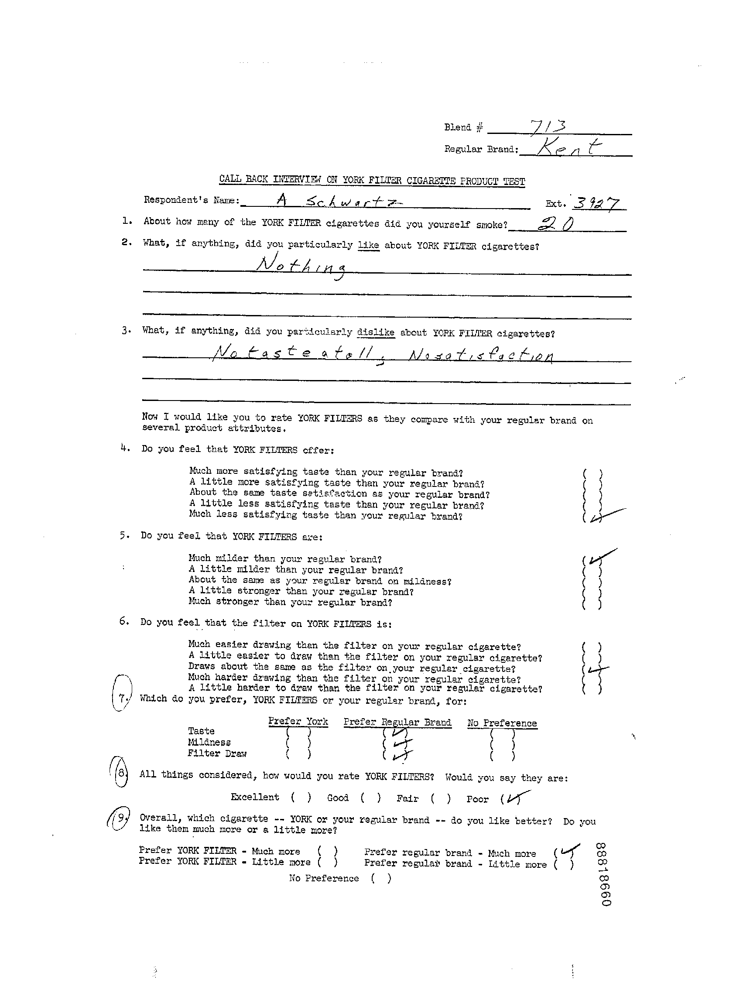 Blend # 713
Regular Brand: Kent
CALL BACK INTERVIEW ON YORK FILTER CIGARETTE PRODUCT TEST
Respondent's Name: A Schwartz Ext. 3927
1. About how many of the YORK FILTER cigarettes did you yourself smoke? 20
2. What, if anything, did you particularly like about YORK FILTER cigarettes?
Nothing
3. What, if anything, did you particularly dislike about YORK FILTER cigarettes?
No taste at all, No satisfaction
Now I would like you to rate YORK FILTERS as they compare with your regular brand on
several product attributes.
4. Do you feel that YORK FILTERS offer:
Much more satisfying taste than your regular brand? ( )
A little more satisfying taste than your regular brand? ( )
About the same taste satisfaction as your regular brand? ( )
A little less satisfying taste than your regular brand? ( )
Much less satisfying taste than your regular brand? (✓)
5. Do you feel that YORK FILTERS are:
Much milder than your regular brand? (✓)
A little milder than your regular brand? ( )
About the same as your regular brand on mildness? ( )
A little stronger than your regular brand? ( )
Much stronger than your regular brand? ( )
6. Do you feel that the filter on YORK FILTERS is:
Much easier drawing than the filter on your regular cigarette? ( )
A little easier to draw than the filter on your regular cigarette? ( )
Draws about the same as the filter on your regular cigarette? (✓)
Much harder drawing than the filter on your regular cigarette? ( )
A little harder to draw than the filter on your regular cigarette? ( )
7. Which do you prefer, YORK FILTERS or your regular brand, for:
Prefer York Prefer Regular Brand No Preference
Taste ( ) (✓) ( )
Mildness ( ) (✓) ( )
Filter Draw ( ) (✓) ( )
8. All things considered, how would you rate YORK FILTERS? Would you say they are:
Excellent ( ) Good ( ) Fair ( ) Poor (✓)
9. Overall, which cigarette -- YORK or your regular brand -- do you like better? Do you
like them much more or a little more?
Prefer YORK FILTER - Much more ( ) Prefer regular brand - Much more (✓)
Prefer YORK FILTER - Little more ( ) Prefer regular brand - Little more ( )
No Preference ( )
88818660